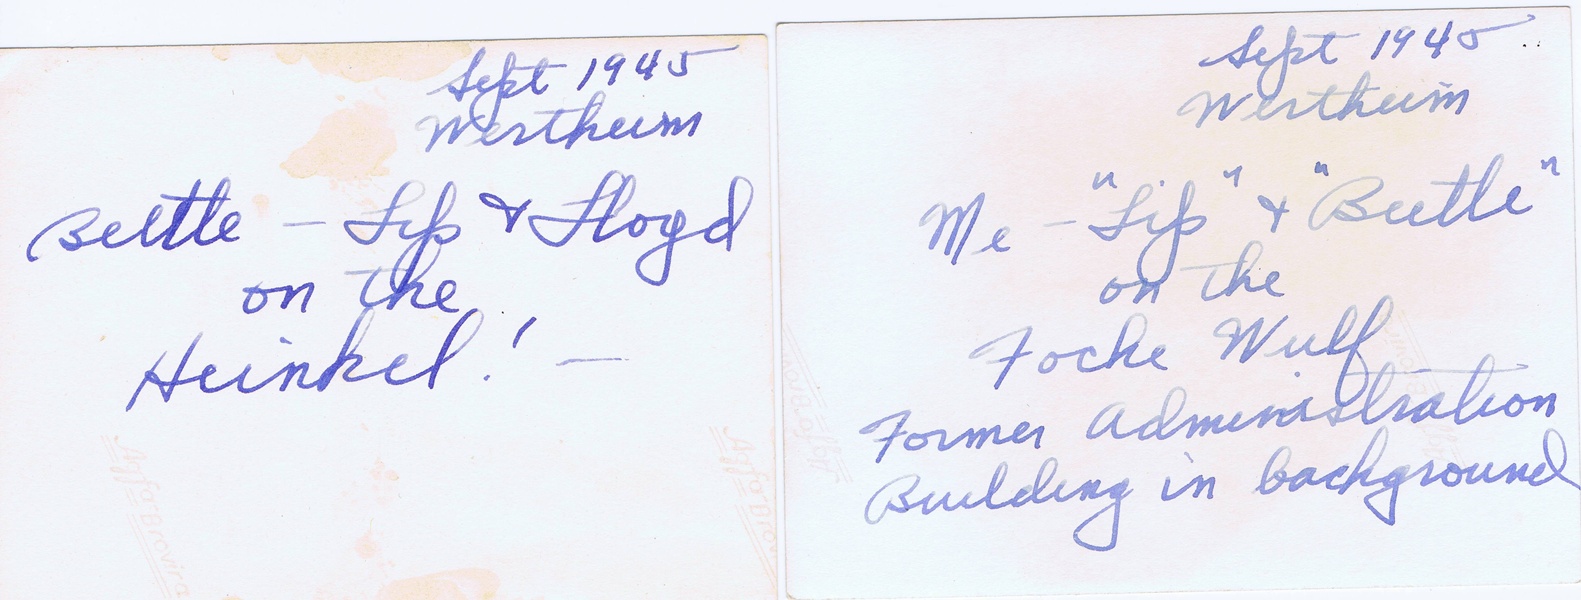 Sept 1945
Wertheim
Beetle - Lip & Floyd
on the
Heinkel! -
Agfa Brovira
Agfa Brov
Sept 1945
Wertheim
Me - "Lip" & "Beetle"
on the
Focke Wulf
Former Administration
Building in background